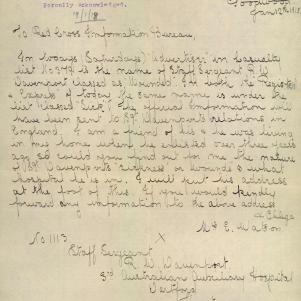 Formally Acknowledged.
Goodwood
Jan 12th 1918
To Red Cross Information Bureau,
In todays (Saturdays) Advertiser in Casualty
List No 379 is the name of Staff Sergeant R W
Davenport classed as Wounded. In both the Register
& Express of today the same name is under
list classed "Sick". The official information will
have been sent to Sgt Davenports relations in
England. I am a friend of his & he was living
in my home when he enlisted over three years
ago so could you find out for me the nature
of Sgt Davenports sickness or wounds & what
hospital he is in. I will put his address
at the foot of this. If you would kindly
forward any information to the above address
& oblige
Mrs E. Watson.
No 1113
X
Staff Sergeant
R W Davenport
3rd Australian Auxiliary Hospital
Dartford